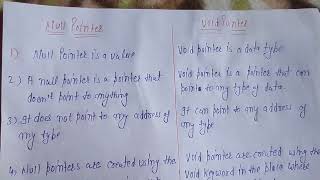 Null Pointer
Void Pointer
1) Null Pointer is a value
Void pointer is a data type
2) A null pointer is a pointer that
doesn't point to anything
Void pointer is a pointer that can
point to any type of data.
3) It does not point to any address of
any type
It can point to any address of
any type
4. Null pointers are created using the
Void pointer are created using the
void keyword in the place where